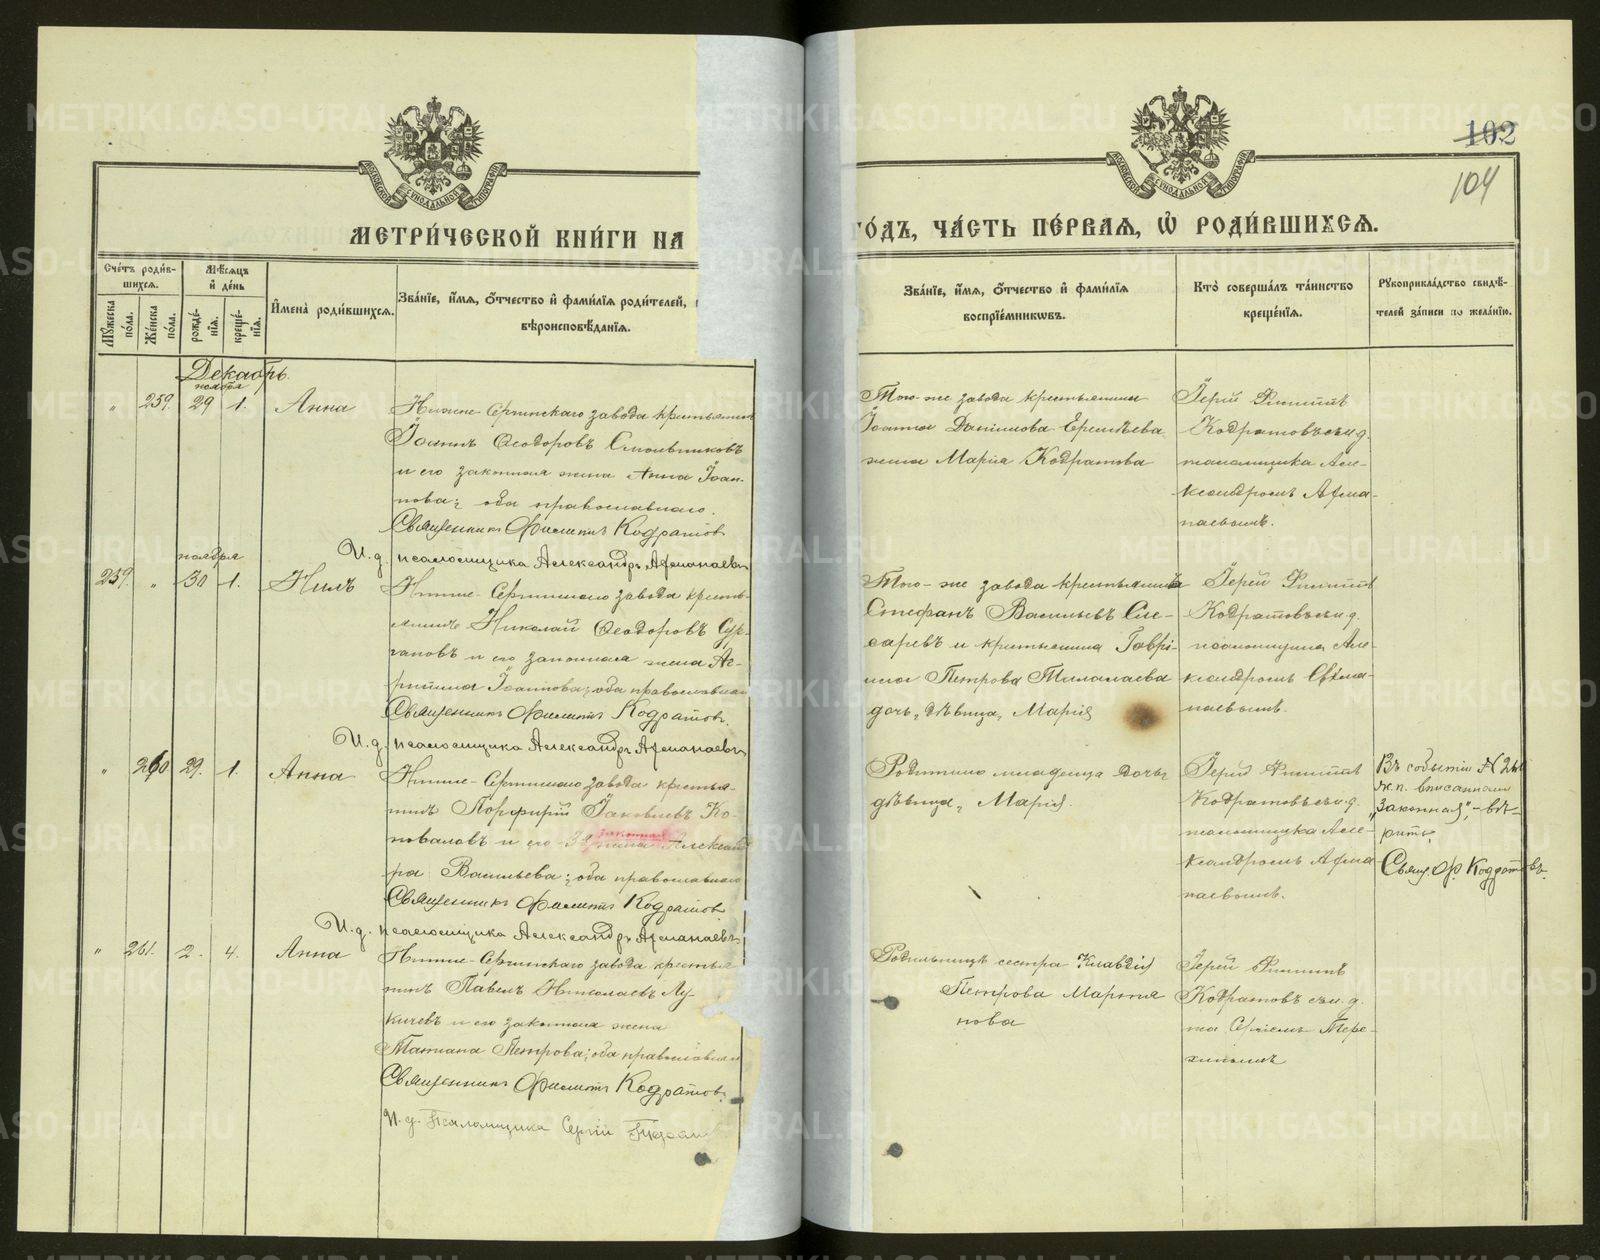 102
104
МЕТРИ́ЧЕСКОЙ КНИ́ГИ НА
ГО́ДЪ, ЧА́СТЬ ПЕ́РВАѦ, Ѡ҆ РОДИ́ВШИХСѦ.
МОСКОВСКОЙ СѴНОДАЛЬНОЙ ТИПОГРАФІИ
МОСКОВСКОЙ СѴНОДАЛЬНОЙ ТИПОГРАФІИ
Сче́тъ роди́вшихсѧ.
Мꙋ́жеска по́ла.
Же́нска по́ла.
Мѣ́сѧцъ и҆ де́нь
рожде́нїѧ.
креще́нїѧ.
И҆мена̀ роди́вшихсѧ.
Зва́нїе, и҆́мѧ, ѻ҆́тчество и҆ фами́лїѧ роди́телей,
вѣроисповѣ́данїѧ.
Зва́нїе, и҆́мѧ, ѻ҆́тчество и҆ фами́лїѧ
воспрїе́мникѡвъ.
Кто̀ соверша́лъ та́инство
креще́нїѧ.
Рꙋкоприкла́дство свидѣ́телей за́писи по жела́нїю.
Декабрь.
ноября
„ 259. 29 1. Анна
Нижне-Сергинскаго завода крестьянинъ
Іоаннъ Ѳеодоровъ Смольниковъ
и его законная жена Анна Іоан-
нова; оба православнаго.
Священникъ Филиппъ Кодратовъ
И. д. псаломщика Александръ Афанасьевъ
Того-же завода крестьянина
Іоанна Даниилова Ермѣева
жена Марія Кодратова
Іерей Филиппъ
Кодратовъ съ и. д.
псаломщика Але-
ксандромъ Афа-
насьевымъ.
ноября
259. „ 30 1. Нилъ
Нижне-Сергинскаго завода кресть-
янинъ Николай Ѳеодоровъ Сур-
гановъ и его законная жена Аг-
рипина Іоаннова; оба православнаго
Священникъ Филиппъ Кодратовъ.
И. д. псаломщика Александръ Афанасьевъ
Того-же завода крестьянинъ
Стефанъ Васильевъ Сле-
саревъ и крестьянина Гаврі-
ила Петрова
дочь, дѣвица, Марія
Іерей Филиппъ
Кодратовъ съ и. д.
псаломщика Але-
ксандромъ Афа-
насьевымъ.
„ 260 29. 1. Анна
Нижне-Сергинскаго завода крестья-
нинъ Порфирій Іаковлевъ Ко-
новаловъ и его законная жена Александ-
ра Васильева; оба православнаго
Священникъ Филиппъ Кодратовъ
И. д. псаломщика Александръ Афанасьевъ
Родителя младенца дочь
дѣвица, Марія.
Іерей Филиппъ
Кодратовъ съ и. д.
псаломщика Але-
ксандромъ Афа-
насьевымъ.
Въ событіи № 260
ж. п. вписанному
„законная“, – вѣ-
рить
Свящ. Ф. Кодратовъ.
„ 261. 2. 4. Анна
Нижне-Сергинскаго завода крестья-
нинъ Павелъ Николаевъ Лу-
кичевъ и его законная жена
Татиана Петрова; оба православнаго
Священникъ Филиппъ Кодратовъ.
И. д. Псаломщика Сергій
Родильницѣ сестра Клавдія
Петрова Мартья-
нова
Іерей Филиппъ
Кодратовъ съ и. д.
пс. Сергіемъ Тере-
хинымъ